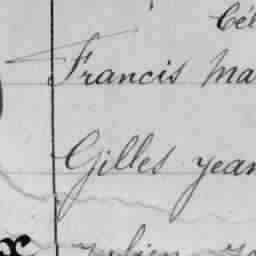 Cél
Francis Ma
Gilles yean
x